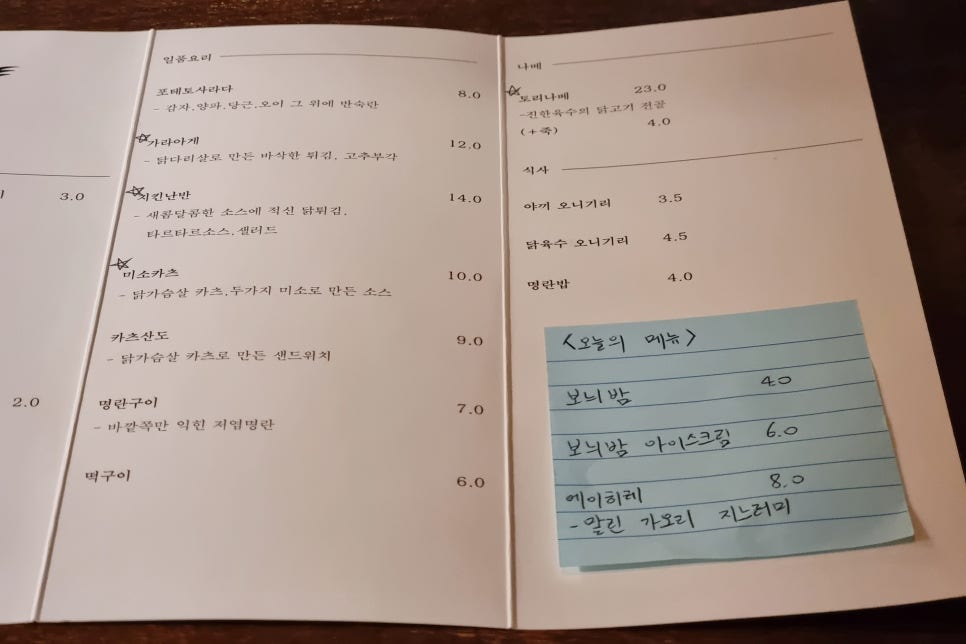 3.0
2.0
일품요리
포테토사라다 8.0
- 감자,양파,당근,오이 그 위에 반숙란
☆가라아게 12.0
- 닭다리살로 만든 바삭한 튀김, 고추부각
☆치킨난반 14.0
- 새콤달콤한 소스에 적신 닭튀김,
타르타르소스,샐러드
☆미소카츠 10.0
- 닭가슴살 카츠,두가지 미소로 만든 소스
카츠산도 9.0
- 닭가슴살 카츠로 만든 샌드위치
명란구이 7.0
- 바깥쪽만 익힌 저염명란
떡구이 6.0
나베
☆토리나베 23.0
-진한육수의 닭고기 전골
(+죽) 4.0
식사
야끼 오니기리 3.5
닭육수 오니기리 4.5
명란밥 4.0
<오늘의 메뉴>
보늬밤 4.0
보늬밤 아이스크림 6.0
에이히레 8.0
- 말린 가오리 지느러미